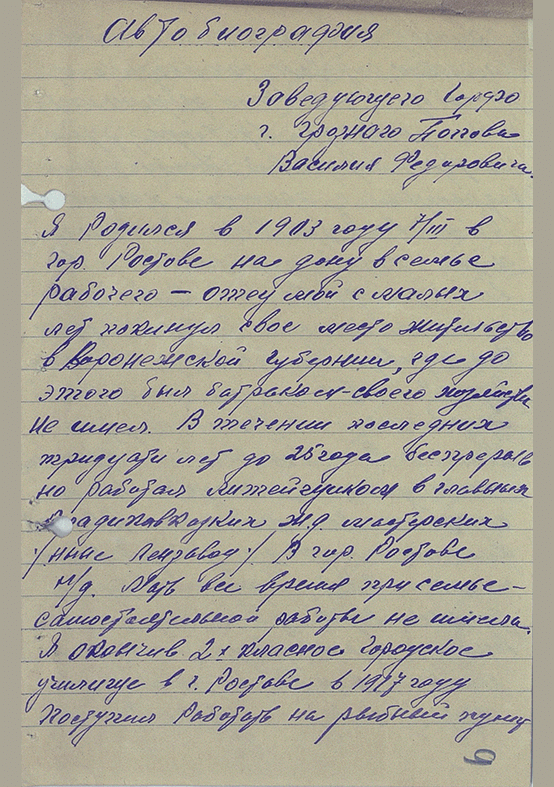 Автобиография
Заведующего Горфо
г. Грозного Попова
Василия Федоровича.
Я Родился в 1903 году 7/III в
гор. Ростове на дону в семье
рабочего – отец мой с малых
лет покинул свое место жительство
в Воронежской губернии, где до
этого был батраком – своего хозяйства
не имел. В течении последних
тридцати лет до 25 года беспрерыв
но работал литейщиком в главных
Владикавказких ж.д мастерских
/ныне Лензавод/ В гор. Ростове
н/д. Мать все время при семье –
самостоятельной работы не имела.
Я окончив 2х класное Городское
училище в г. Ростове в 1917 году
поступил Работать на рыбный пункт
9